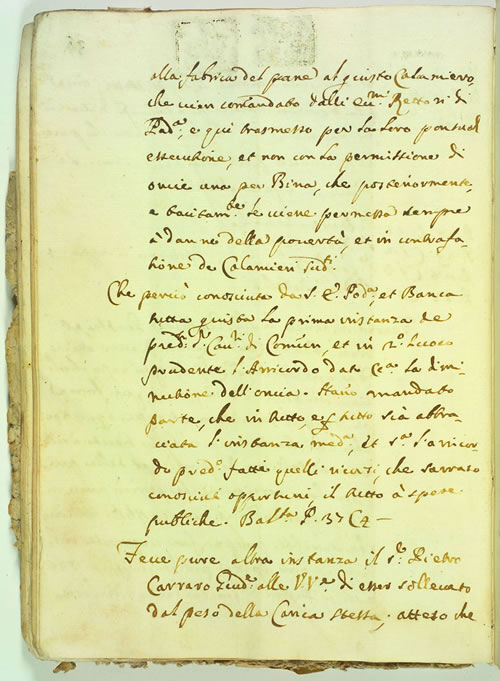 alla fabrica del pane al giusto Calamiero,
che vien comandato dalli ecc.mi Rettori di
Pad.a, e qui trasmesso per la loro pontual
essecutione, et non con la permissione di
oncie una per Bina, che posteriormente,
e tacitam.te se viene permessa sempre
à danno della povertà, et in contrafa-
tione de Calamieri sud.i
Che perciò conosciuta da S. Ecc. Pod.à, et Banca
tutta giusta la prima instanza de
pred.i S.ri Cav.i di Comun, et in 2.o luoco
prudente l'Arricordo dato c.a la dimi-
nutione dell'oncia. Hano mandato
parte, che in tutto, e p tutto sia abbra-
ciata l'instanza med.a, et s.a l'aricor-
do pred.o fatti quelli ricorsi, che sarano
conosciuti opportuni, il tutto à spese
publiche. Bal.ta P. 37 C 4 —
Fece pure altra instanza il S.r Pietro
Carraro Giud.e alle VV.e di esser sollevato
dal peso della Carica stessa, atteso che